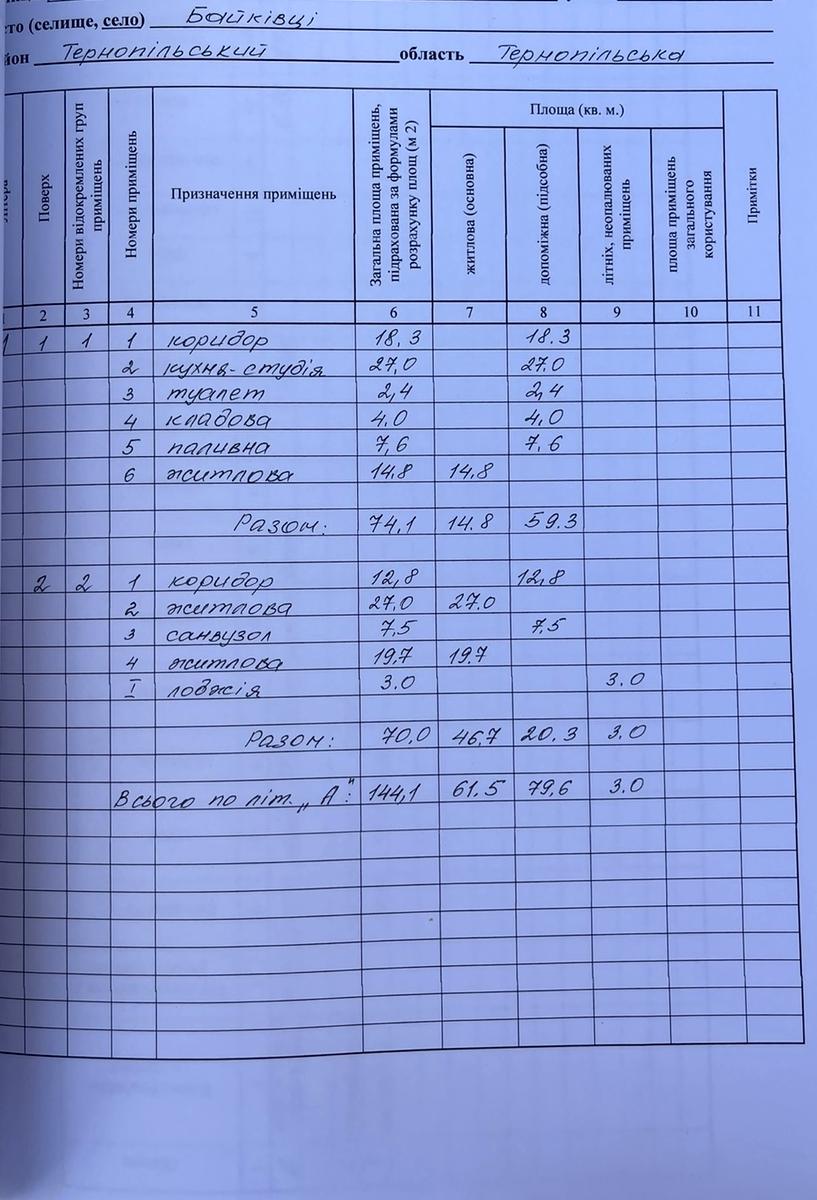 (селище, село) Байківці
Тернопільський область Тернопільська
Поверх
Номери відокремлених груп приміщень
Номери приміщень
Призначення приміщень
Загальна площа приміщень, підрахована за формулами розрахунку площ (м 2)
Площа (кв. м.)
житлова (основна)
допоміжна (підсобна)
літніх, неопалюваних приміщень
площа приміщень загального користування
Примітки
2 3 4 5 6 7 8 9 10 11
1 1 1 коридор 18,3 18.3
2 кухня-студія 27,0 27.0
3 туалет 2,4 2,4
4 кладова 4.0 4,0
5 паливна 7,6 7,6
6 житлова 14.8 14.8
Разом: 74,1 14.8 59.3
2 2 1 коридор 12,8 12,8
2 житлова 27,0 27.0
3 санвузол 7,5 7,5
4 житлова 19,7 19.7
I лоджія 3.0 3.0
Разом: 70,0 46,7 20.3 3.0
Всього по літ. „А": 144,1 61.5 79,6 3.0